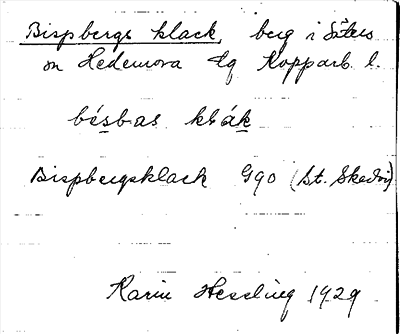 Bispbergs klack, berg i Säters
sn Hedemora tlg Kopparb. l.
bésbas klák
Bispbergsklack G90 (St. Skedvi)
Karin Hessling 1929